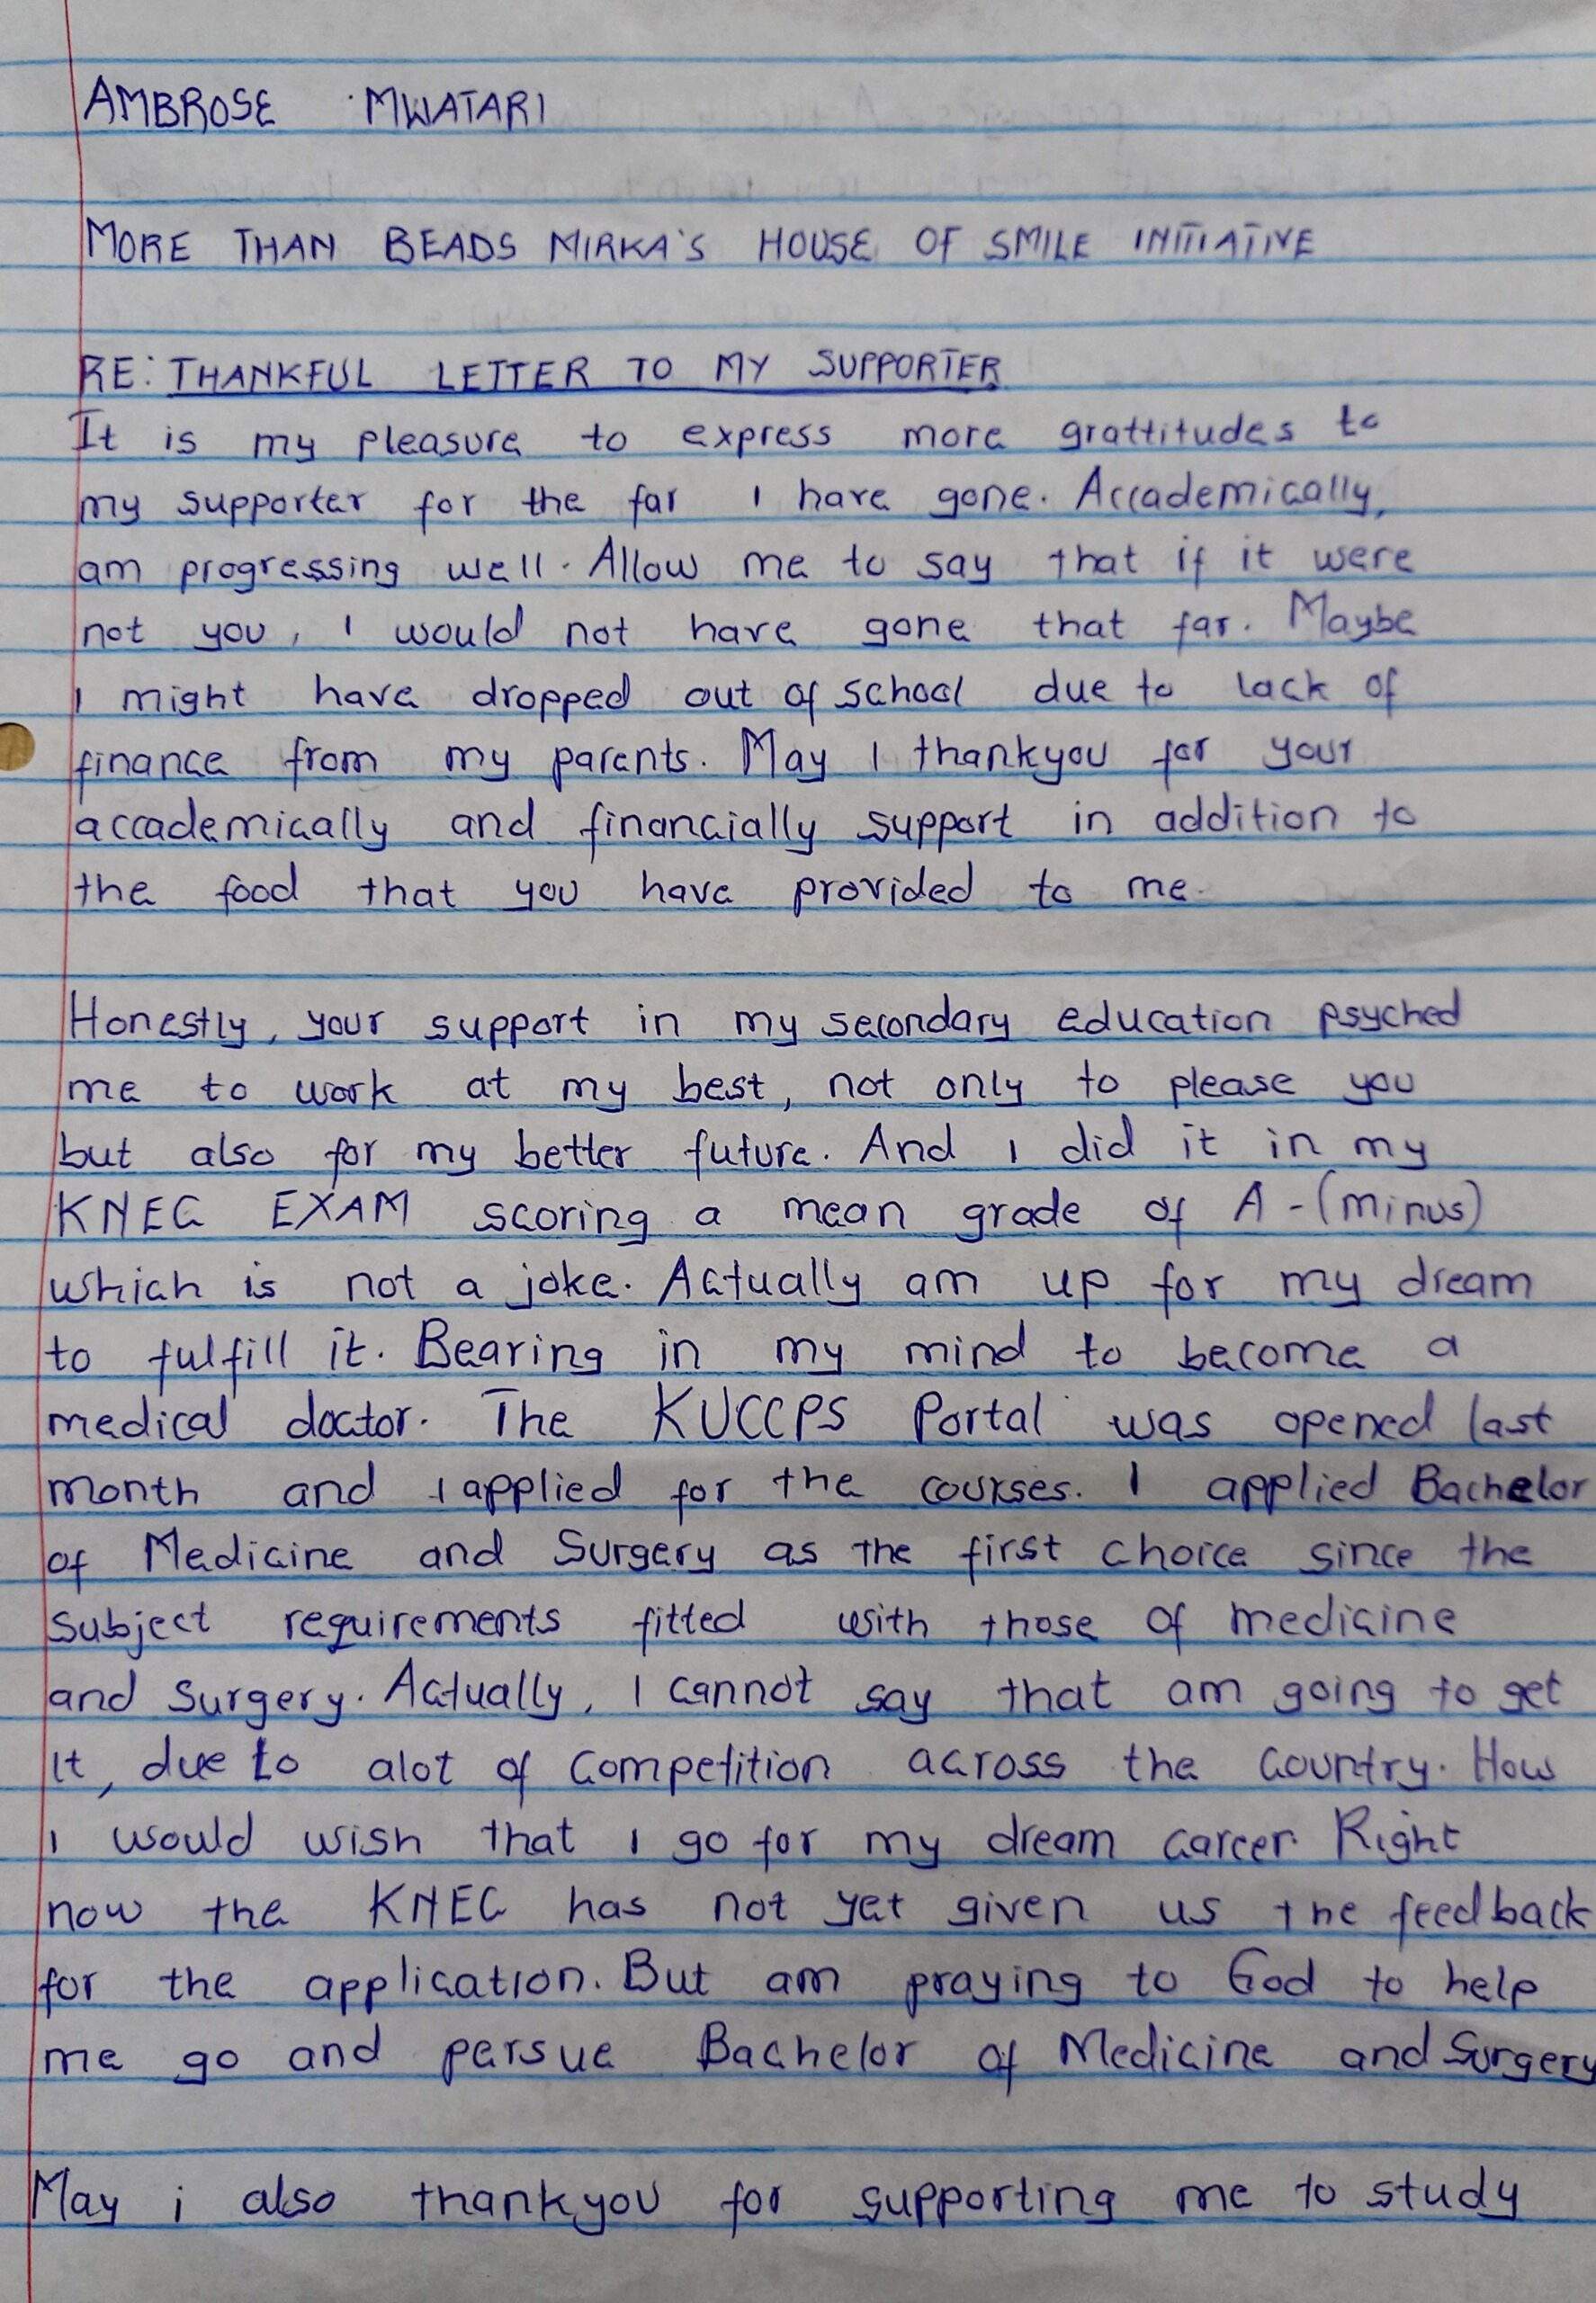 AMBROSE MWATARI
MORE THAN BEADS MIRKA'S HOUSE OF SMILE INITIATIVE
RE: THANKFUL LETTER TO MY SUPPORTER
It is my pleasure to express more grattitudes to
my supporter for the far I have gone. Accademically,
am progressing well. Allow me to say that if it were
not you, I would not have gone that far. Maybe
I might have dropped out of school due to lack of
finance from my parents. May I thankyou for your
accademically and financially support in addition to
the food that you have provided to me.
Honestly, your support in my secondary education psyched
me to work at my best, not only to please you
but also for my better future. And I did it in my
KNEC EXAM scoring a mean grade of A-(minus)
which is not a joke. Actually am up for my dream
to fulfill it. Bearing in my mind to become a
medical doctor. The KUCCPS Portal was opened last
month and I applied for the courses. I applied Bachelor
of Medicine and Surgery as the first choice since the
subject requirements fitted with those of medicine
and surgery. Actually, I cannot say that am going to get
it, due to alot of competition across the country. How
I would wish that I go for my dream career. Right
now the KNEC has not yet given us the feedback
for the application. But am praying to God to help
me go and persue Bachelor of Medicine and Surgery
May i also thankyou for supporting me to study